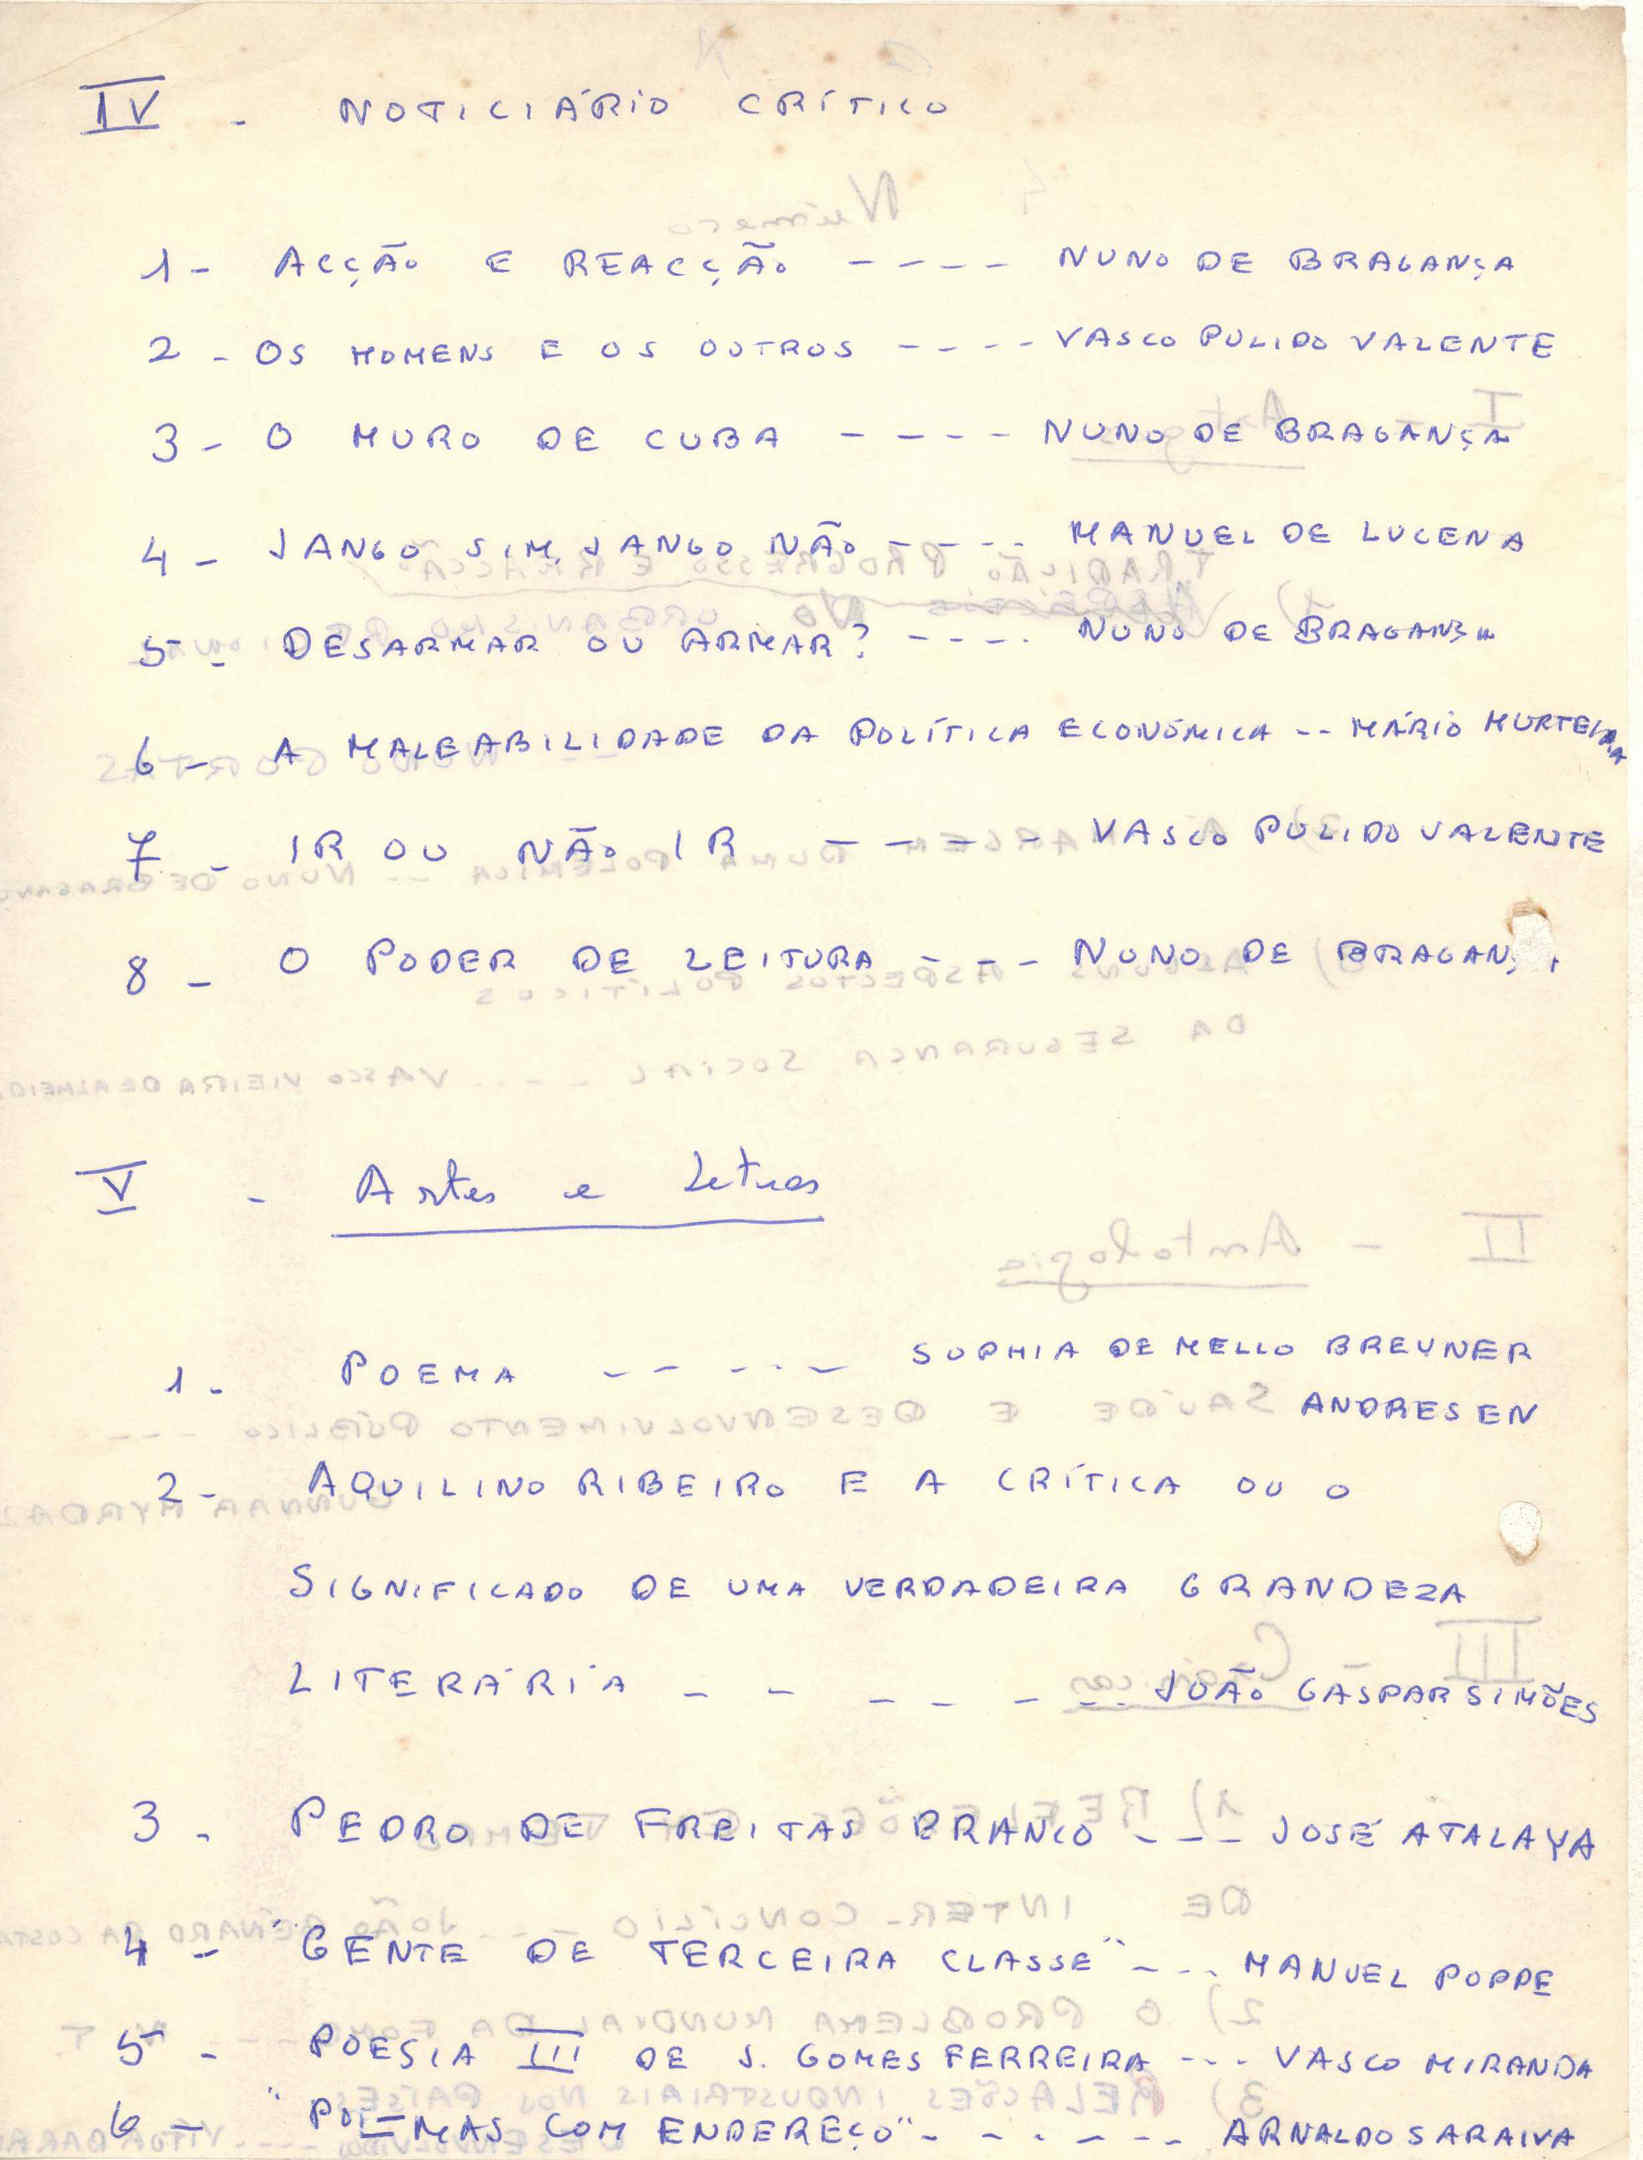 IV - NOTICIÁRIO CRÍTICO
1 - ACÇÃO E REACÇÃO ---- NUNO DE BRAGANÇA
2 - OS HOMENS E OS OUTROS ---- VASCO PULIDO VALENTE
3 - O MURO DE CUBA ---- NUNO DE BRAGANÇA
4 - JANGO SIM, JANGO NÃO ---- MANUEL DE LUCENA
5 - DESARMAR OU ARMAR? ---- NUNO DE BRAGANÇA
6 - A MALEABILIDADE DA POLÍTICA ECONÓMICA -- MÁRIO MURTEIRA
7 - IR OU NÃO IR ----- VASCO PULIDO VALENTE
8 - O PODER DE LEITURA ---- NUNO DE BRAGANÇA
V - Artes e Letras
1 - POEMA ----- SOPHIA DE MELLO BREYNER
ANDRESEN
2 - AQUILINO RIBEIRO E A CRÍTICA OU O
SIGNIFICADO DE UMA VERDADEIRA GRANDEZA
LITERÁRIA -------- JOÃO GASPAR SIMÕES
3 - PEDRO DE FREITAS BRANCO --- JOSÉ ATALAYA
4 - "GENTE DE TERCEIRA CLASSE" --- MANUEL POPPE
5 - POESIA III DE J. GOMES FERREIRA --- VASCO MIRANDA
6 - "POEMAS COM ENDEREÇO" ------ ARNALDO SARAIVA